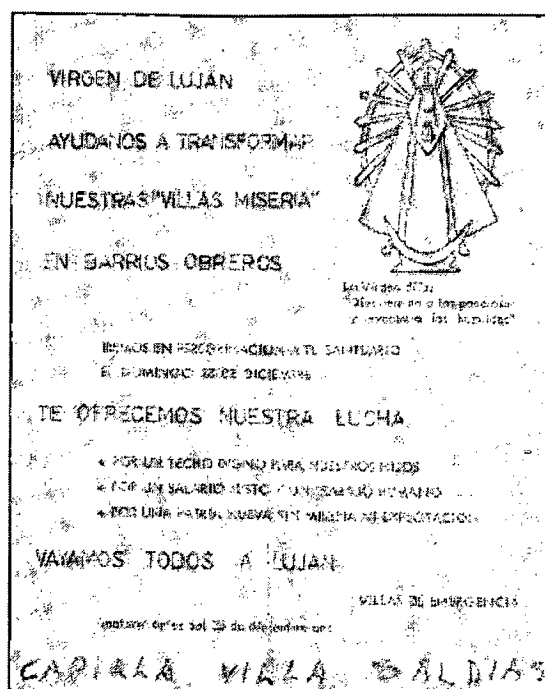 VIRGEN DE LUJAN
AYUDANOS A TRANSFORMAR
NUESTRAS "VILLAS MISERIA"
EN BARRIOS OBREROS
La Virgen dice:
"Dios derribó a los poderosos
y levantó a los humildes"
IREMOS EN PEREGRINACION A TU SANTUARIO
EL DOMINGO 28 DE DICIEMBRE
TE OFRECEMOS NUESTRA LUCHA
POR UN TECHO DIGNO PARA NUESTROS HIJOS
POR UN SALARIO JUSTO Y UN TRABAJO HUMANO
POR UNA PATRIA NUEVA SIN MISERIA NI EXPLOTACION
VAYAMOS TODOS A LUJAN
VILLAS DE EMERGENCIA
antes del de diciembre en:
CAPILLA VILLA SALDIAS